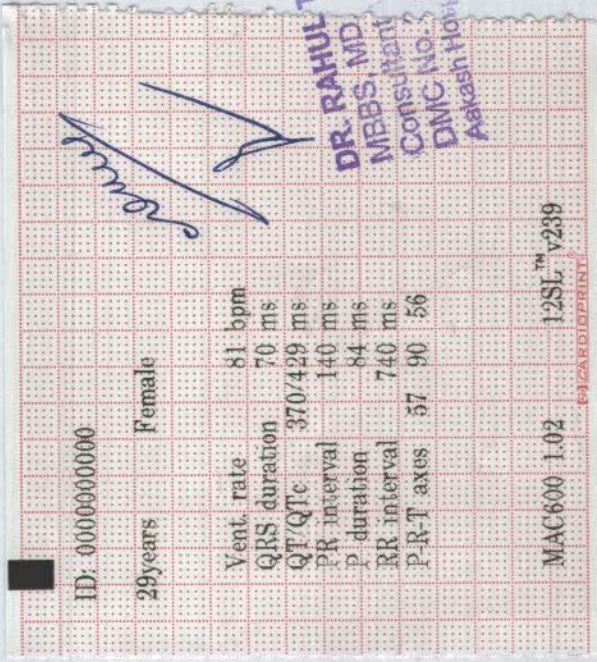 ID: 0000000000
29years Female
Vent. rate 81 bpm
QRS duration 70 ms
QT/QTc 370/429 ms
PR interval 140 ms
P duration 84 ms
RR interval 740 ms
P-R-T axes 57 90 56
MAC600 1.02 12SL™ v239
CARDIOPRINT
DR. RAHUL
MBBS, MD
Consultant
DMC No.
Aakash